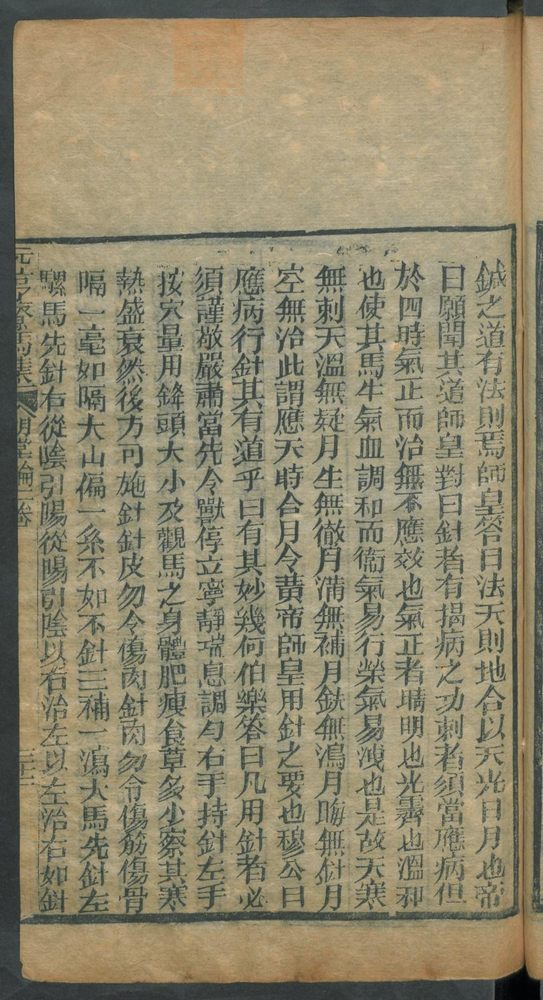 鍼之道有法則焉師皇答曰法天則地合以天光日月也帝
曰願聞其道師皇對曰針者有揭病之功刺者須當應病但
於四時氣正而治無不應效也氣正者晴明也光霽也溫和
也使其馬牛氣血調和而衞氣易行榮氣易洩也是故天寒
無刺天溫無疑月生無徹月滿無補月鈌無瀉月晦無針月
空無治此謂應天時合月令黄帝師皇用針之要也穆公曰
應病行針其有道乎曰有其妙幾何伯樂答曰凡用針者必
須謹敬嚴肅當先令獸停立寧靜喘息調勻右手持針左手
按穴量用鋒頭大小及觀馬之身體肥瘦食草多少察其寒
熱盛衰然後方可施針針皮勿令傷肉針肉勿令傷筋傷骨
隔一毫如隔大山偏一糸不如不針三補一瀉大馬先針左
騍馬先針右從陰引陽從陽引陰以右治左以左治右如針
元亨療馬集 明堂論一卷 三十二